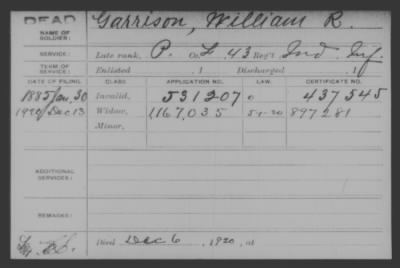 DEAD
NAME OF SOLDIER: Garrison, William R.
SERVICE: Late rank, P. Co. F, 43 Reg't Ind. Inf.
TERM OF SERVICE: Enlisted , 1 Discharged , 1
DATE OF FILING. CLASS. APPLICATION NO. LAW. CERTIFICATE NO.
1885 Jan. 30 Invalid, 531207 0 437545
1920 Dec 13 Widow, 1167,035 5-1-20 897281
Minor,
ADDITIONAL SERVICES:
REMARKS:
Died Dec 6, 1920, at